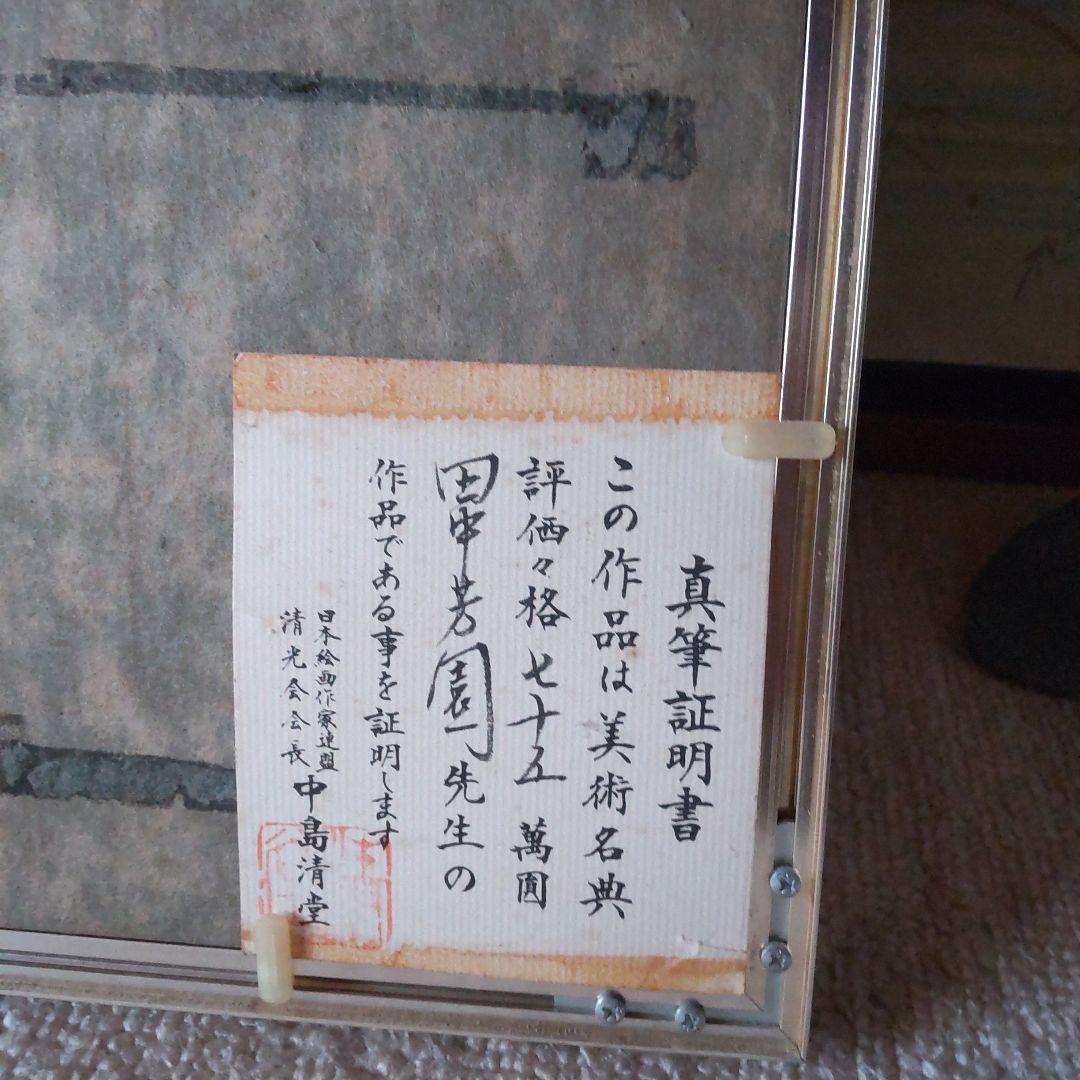 真筆証明書
この作品は美術名典
評価々格 七十五 萬圓
田中芳園先生の
作品である事を証明します
日本絵画作家連盟
清光会会長 中島清堂